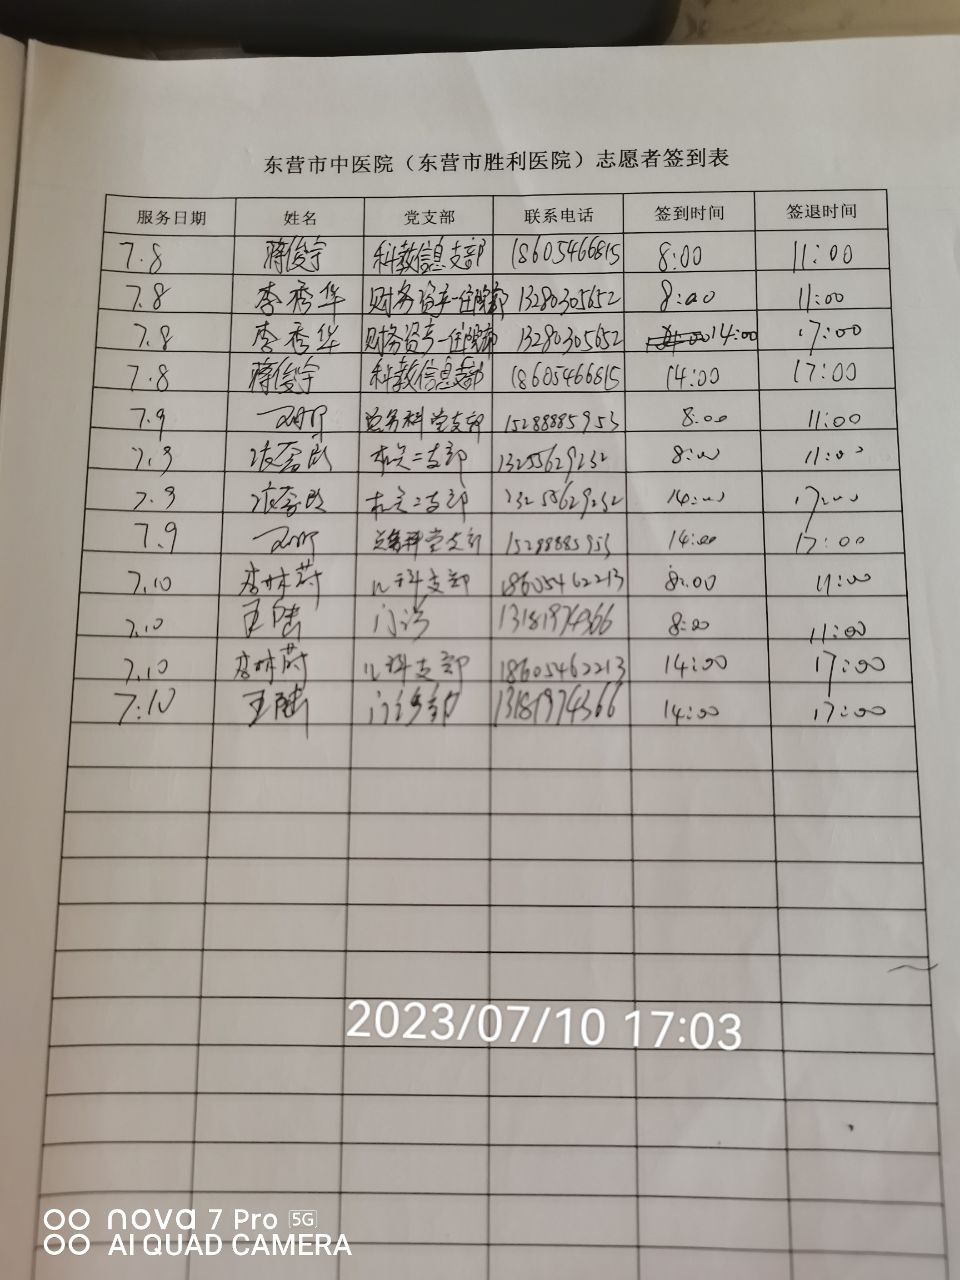 东营市中医院（东营市胜利医院）志愿者签到表
服务日期 姓名 党支部 联系电话 签到时间 签退时间
7.8 蒋俊宇 科教信息支部 18605466815 8:00 11:00
7.8 李秀华 财务资产一住院部 13280305652 8:00 11:00
7.8 李秀华 财务资产一住院部 13280305652 14:00 17:00
7.8 蒋俊宇 科教信息支部 18605466815 14:00 17:00
7.9 总务科党支部 15288885953 8:00 11:00
7.9 机关二支部 13255629232 8:00 11:00
7.9 机关二支部 13255629232 14:00 17:00
7.9 总务科党支部 15288885953 14:00 17:00
7.10 李林蔚 儿科支部 18605462213 8:00 11:00
7.10 王陆 门诊 13181974366 8:00 11:00
7.10 李林蔚 儿科支部 18605462213 14:00 17:00
7:10 王陆 门诊部 13181974366 14:00 17:00
2023/07/10 17:03
nova 7 Pro 5G
AI QUAD CAMERA